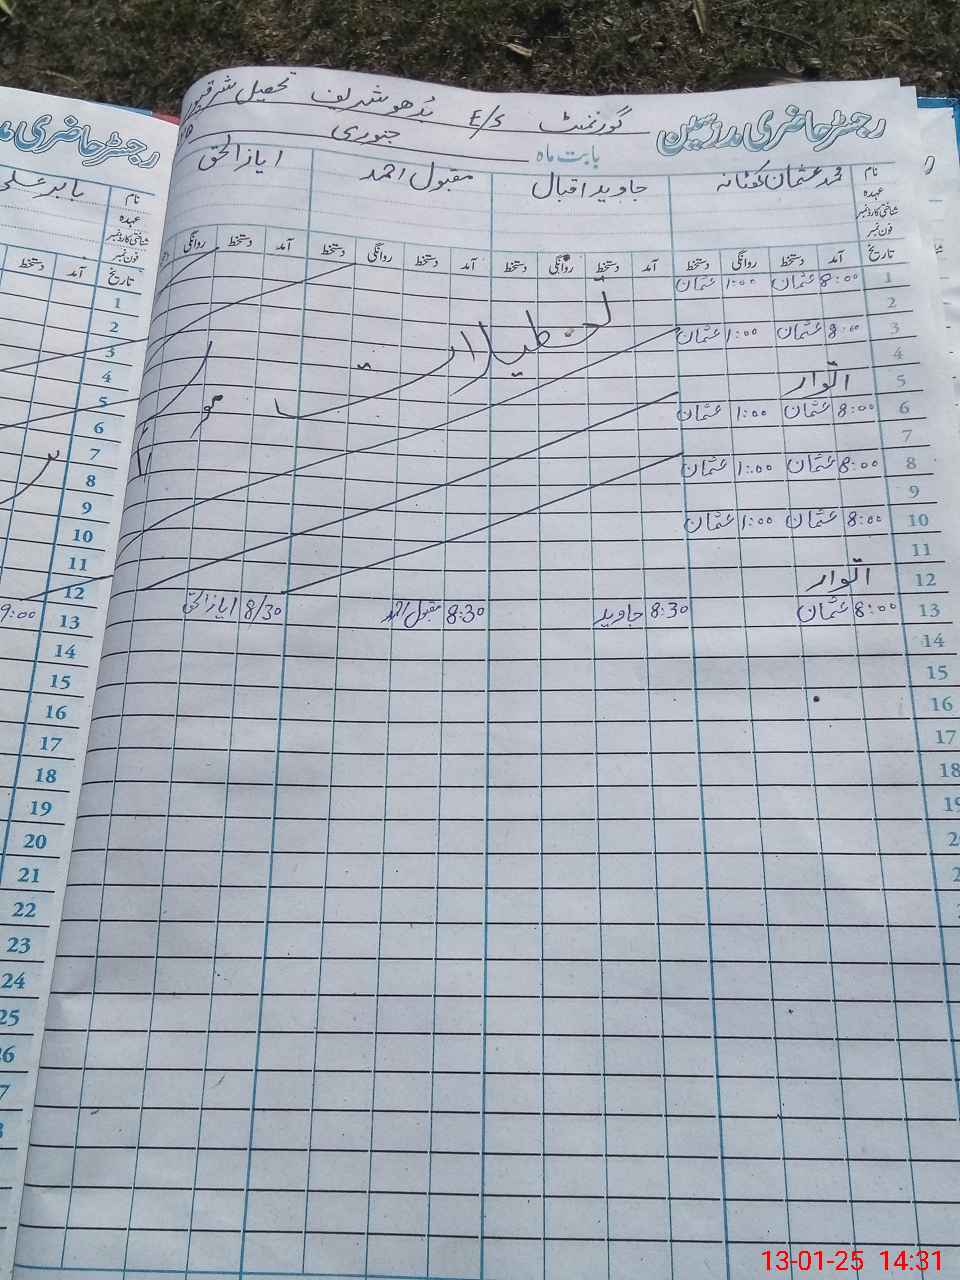 رجسٹر حاضری مدرسین گورنمنٹ E/S بُدھو شریف تحصیل شرقپور
بابت ماہ جنوری
نام محمد عثمان جاوید اقبال مقبول احمد ایاز الحق
عہدہ
شناختی کارڈ نمبر
فون نمبر
تاریخ آمد دستخط روانگی دستخط آمد دستخط روانگی دستخط آمد دستخط روانگی دستخط آمد دستخط روانگی
1 8:00 عثمان 1:00 عثمان
2
3 8:00 عثمان 1:00 عثمان
4
5 اتوار
6 8:00 عثمان 1:00 عثمان
7
8 8:00 عثمان 1:00 عثمان
9
10 8:00 عثمان 1:00 عثمان
11
12 اتوار
13 8:00 عثمان 8:30 جاوید 8:30 مقبول احمد 8/30 ایاز الحق
14
15
16
17
18
19
تعطیلات
رجسٹر حاضری مد
نام بابر
عہدہ
شناختی کارڈ نمبر
فون نمبر
تاریخ آمد دستخط
1
2
3
4
5
6
7
8
9
10
11
12
13 9:00
14
15
16
17
18
19
20
21
22
23
24
25
13-01-25 14:31